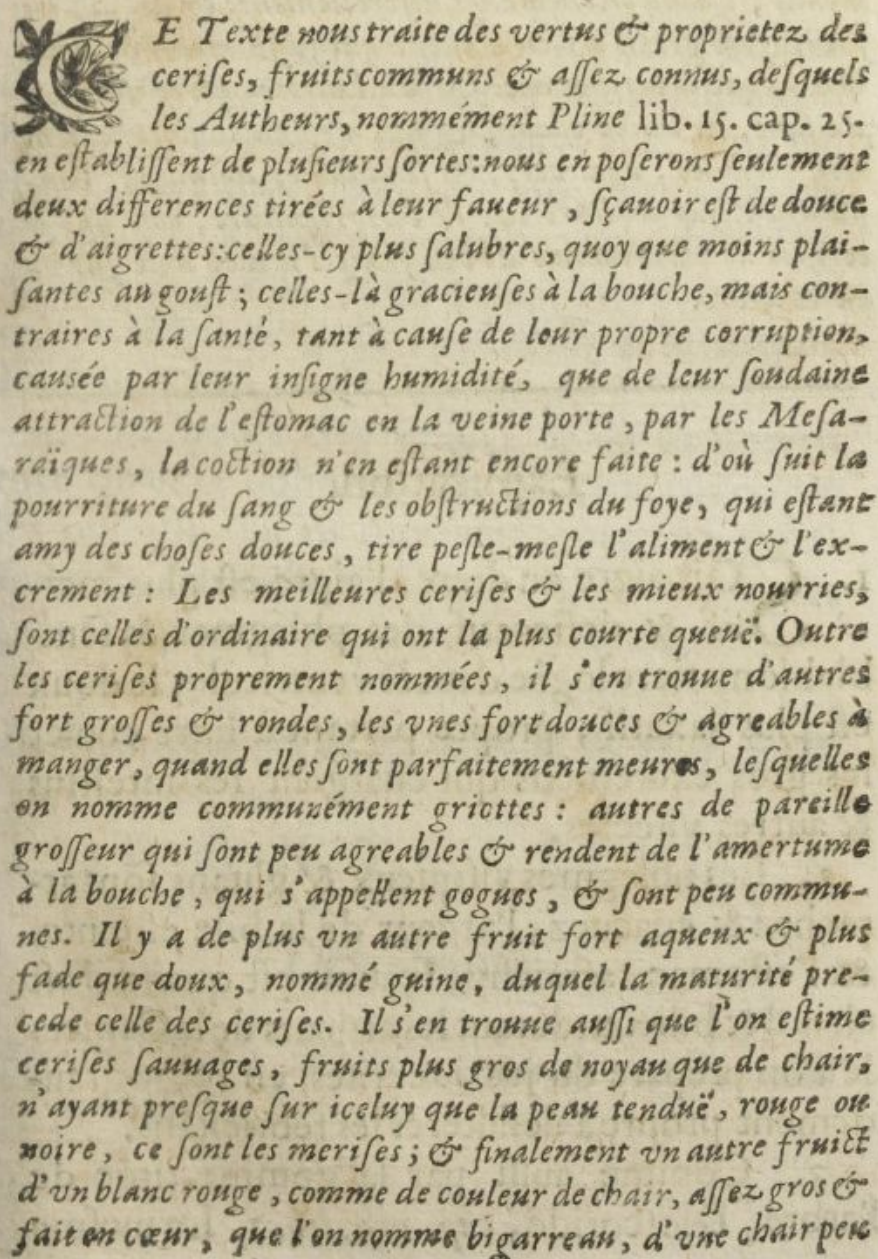 CE Texte nous traite des vertus & proprietez des
ceriſes, fruits communs & aſſez connus, deſquels
les Autheurs, nommément Pline lib. 15. cap. 25.
en eſtabliſſent de pluſieurs ſortes: nous en poſerons ſeulement
deux differences tirées à leur faueur, ſçauoir eſt de douce
& d'aigrettes: celles-cy plus ſalubres, quoy que moins plai-
ſantes au gouſt; celles-là gracieuſes à la bouche, mais con-
traires à la ſanté, tant à cauſe de leur propre corruption,
causée par leur inſigne humidité, que de leur ſoudaine
attraction de l'eſtomac en la veine porte, par les Meſa-
raïques, la coction n'en eſtant encore faite: d'où ſuit la
pourriture du ſang & les obſtructions du foye, qui eſtant
amy des choſes douces, tire peſle-meſle l'aliment & l'ex-
crement: Les meilleures ceriſes & les mieux nourries,
ſont celles d'ordinaire qui ont la plus courte queuë. Outre
les ceriſes proprement nommées, il s'en trouue d'autres
fort groſſes & rondes, les vnes fort douces & agreables à
manger, quand elles ſont parfaitement meures, leſquelles
on nomme communément griottes: autres de pareille
groſſeur qui ſont peu agreables & rendent de l'amertume
à la bouche, qui s'appellent gogues, & ſont peu commu-
nes. Il y a de plus vn autre fruit fort aqueux & plus
fade que doux, nommé guine, duquel la maturité pre-
cede celle des ceriſes. Il s'en trouue auſſi que l'on eſtime
ceriſes ſauuages, fruits plus gros de noyau que de chair,
n'ayant preſque ſur iceluy que la peau tenduë, rouge ou
noire, ce ſont les meriſes; & finalement vn autre fruict
d'vn blanc rouge, comme de couleur de chair, aſſez gros &
fait en cœur, que l'on nomme bigarreau, d'vne chair peu